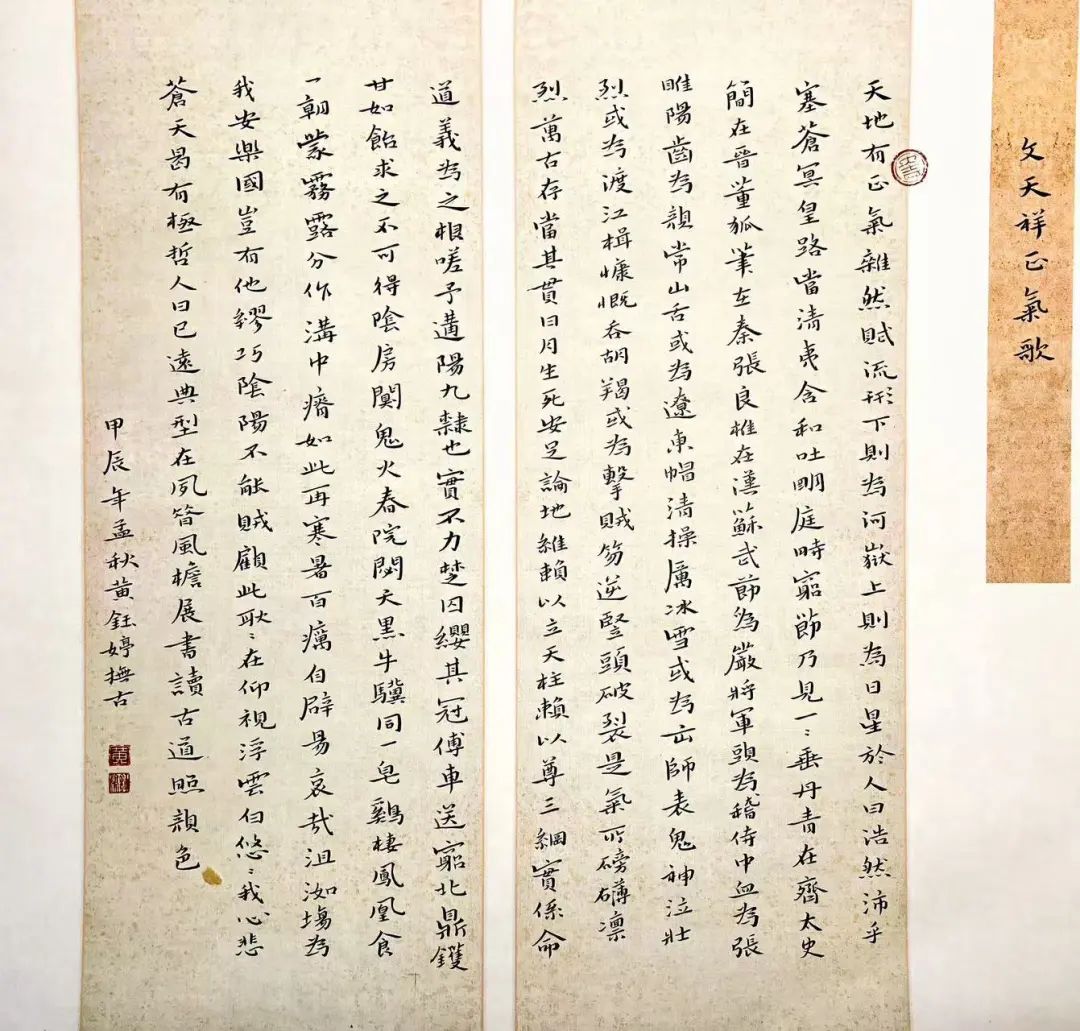 文天祥正氣歌
天地有正氣雜然賦流形下則為河嶽上則為日星於人曰浩然沛乎
塞蒼冥皇路當清夷含和吐明庭時窮節乃見一〻垂丹青在齊太史
簡在晉董狐筆在秦張良椎在漢蘇武節為嚴將軍頭為稽侍中血為張
睢陽齒為顏常山舌或為遼東帽清操厲冰雪或為出師表鬼神泣壯
烈或為渡江楫慷慨吞胡羯或為擊賊笏逆豎頭破裂是氣所磅礴凛
烈萬古存當其貫日月生死安足論地維賴以立天柱賴以尊三綱實係命
道義為之根嗟予遘陽九隸也實不力楚囚纓其冠傳車送窮北鼎鑊
甘如飴求之不可得陰房闃鬼火春院閟天黑牛驥同一皂雞棲鳳凰食
一朝蒙霧露分作溝中瘠如此再寒暑百癘自辟易哀哉沮洳場為
我安樂國豈有他繆巧陰陽不能賊顧此耿〻在仰視浮雲白悠〻我心悲
蒼天曷有極哲人日已遠典型在夙昔風檐展書讀古道照顏色
甲辰年孟秋黃鈺婷撫古